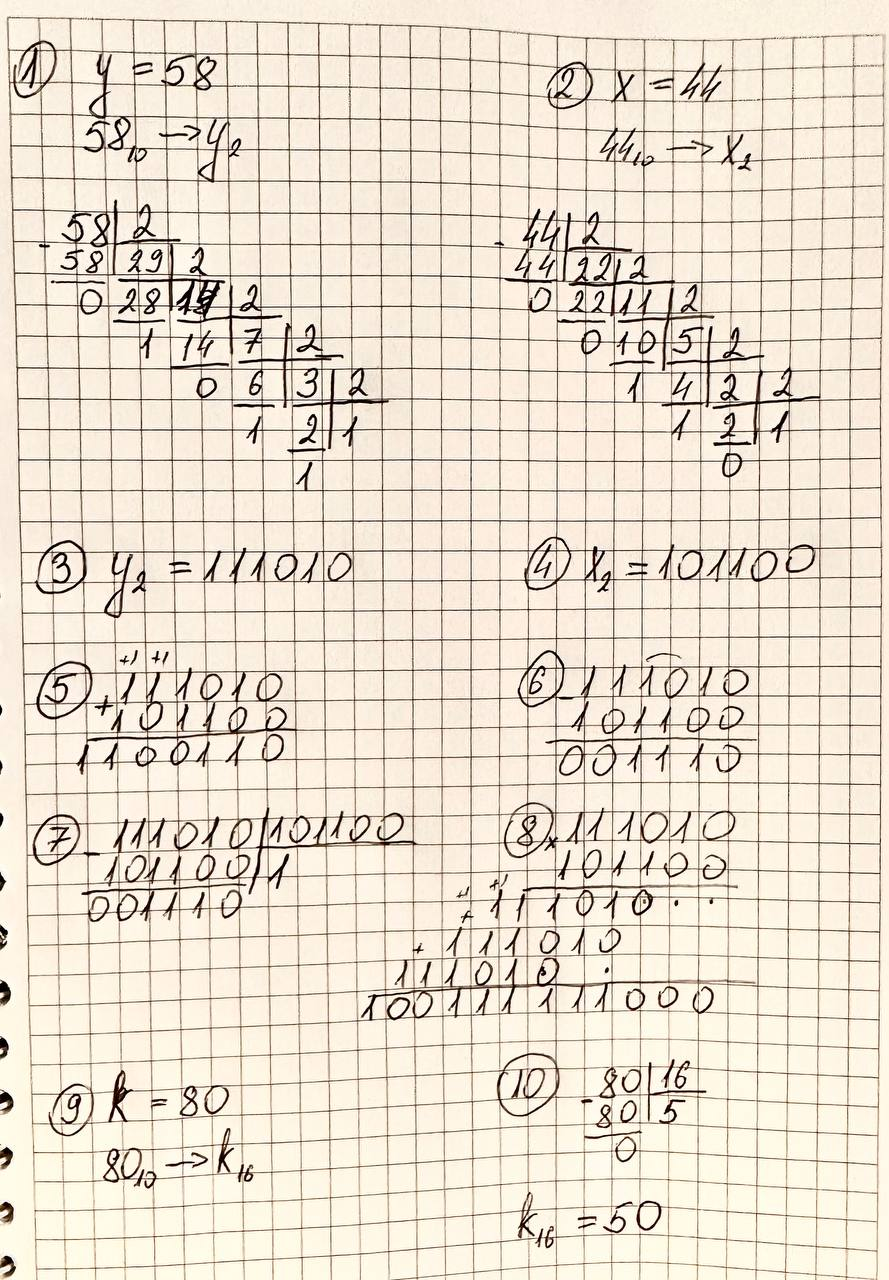 ① y = 58
58₁₀ → y₂
- 58 | 2
58 | 29 | 2
0 28 | 14 | 2
1 14 | 7 | 2
0 6 | 3 | 2
1 2 | 1
1
② x = 44
44₁₀ → x₂
- 44 | 2
44 | 22 | 2
0 22 | 11 | 2
0 10 | 5 | 2
1 4 | 2 | 2
1 2 | 1
0
③ y₂ = 111010
④ x₂ = 101100
⑤ +1 +1
+ 111010
101100
1100110
⑥ - 111010
101100
001110
⑦ - 111010 | 101100
101100 | 1
001110
⑧ × 111010
101100
+1 +1
+ 111010 · ·
+ 111010
111010 ·
100111111000
⑨ k = 80
80₁₀ → k₁₆
⑩ - 80 | 16
80 | 5
0
k₁₆ = 50